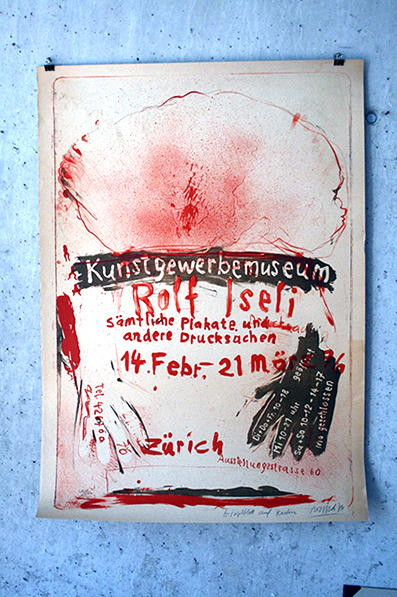 Kunstgewerbemuseum
Rolf Iseli
sämtliche Plakate und
andere Drucksachen
14. Febr.- 21 März 76
Di+Do+Fr. 10-18
Mi. 10-21 Uhr
Sa+So 10-12-14-17
mo geschlossen
Tel. 42 67 00
70
Zürich
Ausstellungsstrasse 60
auf